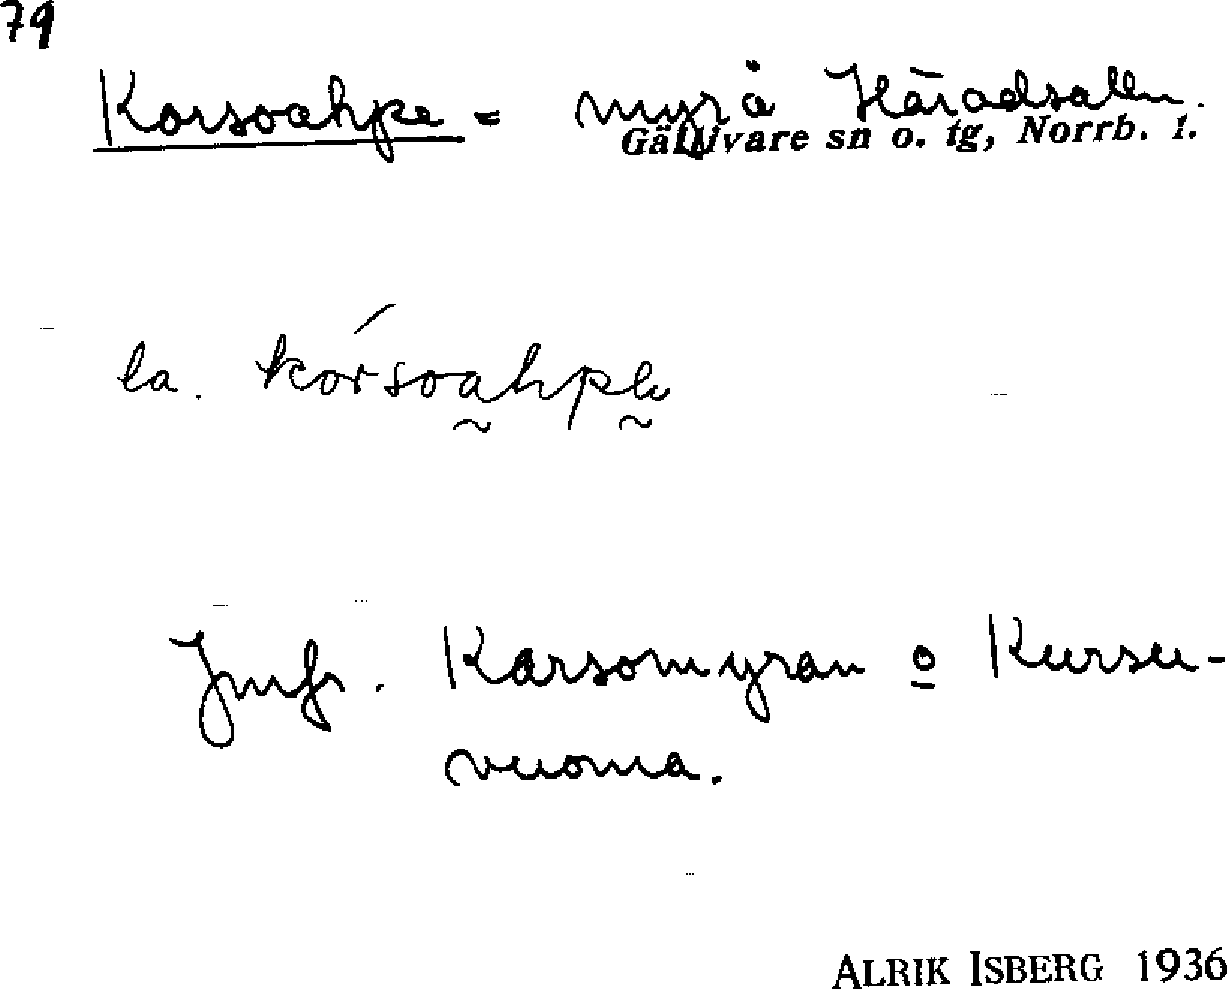 79
Korsoahpe = myr å Häradsallm.
Gällivare sn o. tg, Norrb. l.
la. kórsoahpe
Jmfr. Karsomyran o Kursu-
vuoma.
ALRIK ISBERG 1936